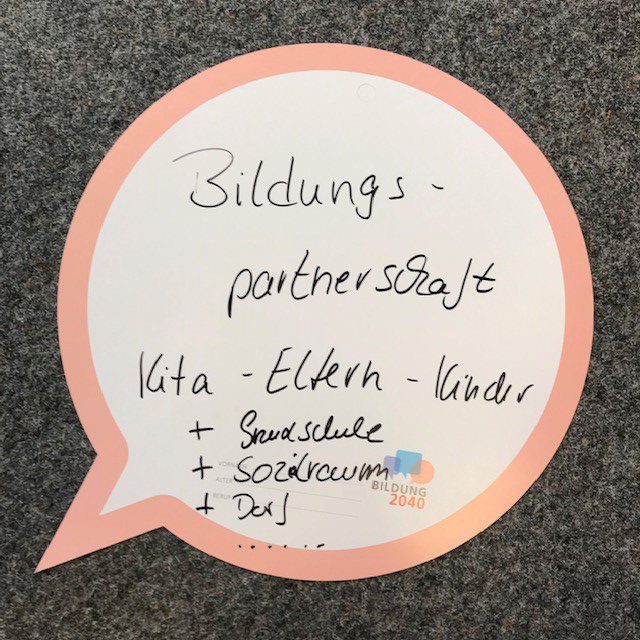 Bildungs -
partnerschaft
Kita - Eltern - Kinder
+ Grundschule
+ Sozialraum
+ Dorf
.......
VORN
ALTER
BERUF
BILDUNG
2040